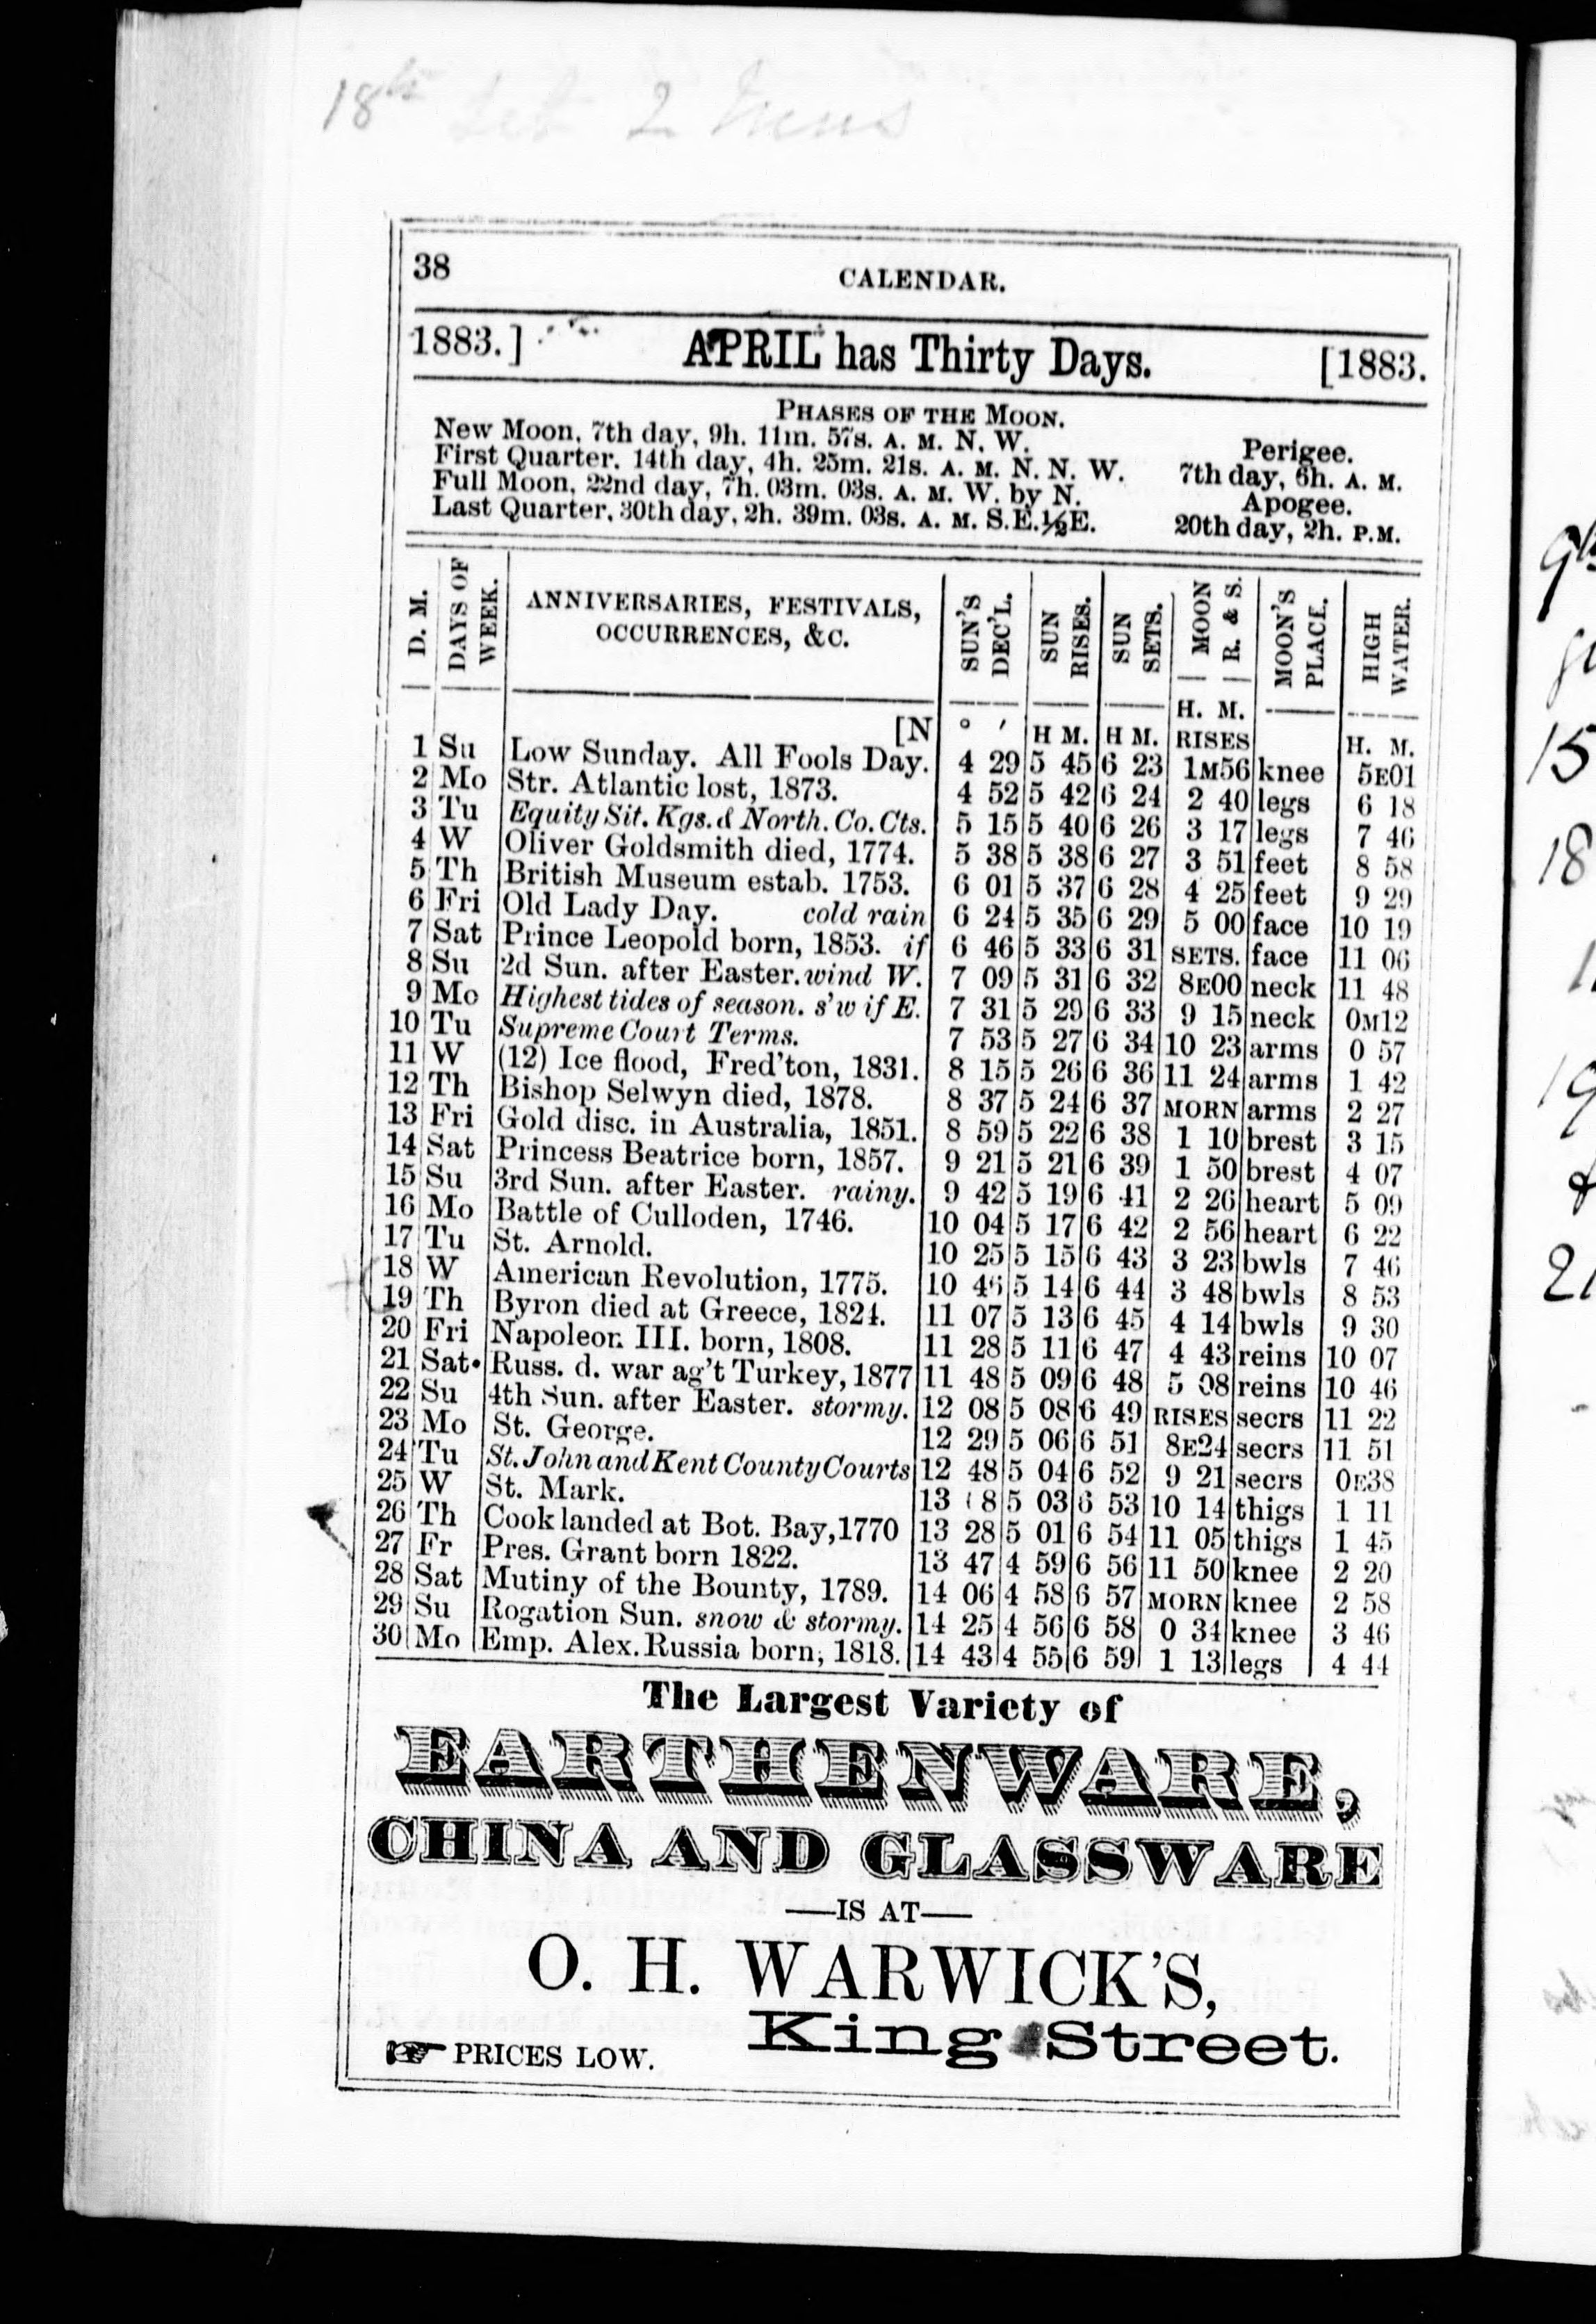 18th Set 2
38
CALENDAR.
1883.] APRIL has Thirty Days. [1883.
PHASES OF THE MOON.
New Moon, 7th day, 9h. 11m. 57s. A. M. N. W.
First Quarter. 14th day, 4h. 25m. 21s. A. M. N. N. W.
Full Moon, 22nd day, 7h. 03m. 03s. A. M. W. by N.
Last Quarter, 30th day, 2h. 39m. 03s. A. M. S.E.½E.
Perigee.
7th day, 6h. A. M.
Apogee.
20th day, 2h. P.M.
D. M. DAYS OF WEEK. ANNIVERSARIES, FESTIVALS, OCCURRENCES, &C. SUN'S DEC'L. SUN RISES. SUN SETS. MOON R. & S. MOON'S PLACE. HIGH WATER.
H. M.
[N ° ′ H M. H M. RISES H. M.
1 Su Low Sunday. All Fools Day. 4 29 5 45 6 23 1M56 knee 5E01
2 Mo Str. Atlantic lost, 1873. 4 52 5 42 6 24 2 40 legs 6 18
3 Tu Equity Sit. Kgs. & North. Co. Cts. 5 15 5 40 6 26 3 17 legs 7 46
4 W Oliver Goldsmith died, 1774. 5 38 5 38 6 27 3 51 feet 8 58
5 Th British Museum estab. 1753. 6 01 5 37 6 28 4 25 feet 9 29
6 Fri Old Lady Day. cold rain 6 24 5 35 6 29 5 00 face 10 19
7 Sat Prince Leopold born, 1853. if 6 46 5 33 6 31 SETS. face 11 06
8 Su 2d Sun. after Easter. wind W. 7 09 5 31 6 32 8E00 neck 11 48
9 Mo Highest tides of season. s'w if E. 7 31 5 29 6 33 9 15 neck 0M12
10 Tu Supreme Court Terms. 7 53 5 27 6 34 10 23 arms 0 57
11 W (12) Ice flood, Fred'ton, 1831. 8 15 5 26 6 36 11 24 arms 1 42
12 Th Bishop Selwyn died, 1878. 8 37 5 24 6 37 MORN arms 2 27
13 Fri Gold disc. in Australia, 1851. 8 59 5 22 6 38 1 10 brest 3 15
14 Sat Princess Beatrice born, 1857. 9 21 5 21 6 39 1 50 brest 4 07
15 Su 3rd Sun. after Easter. rainy. 9 42 5 19 6 41 2 26 heart 5 09
16 Mo Battle of Culloden, 1746. 10 04 5 17 6 42 2 56 heart 6 22
17 Tu St. Arnold. 10 25 5 15 6 43 3 23 bwls 7 46
18 W American Revolution, 1775. 10 46 5 14 6 44 3 48 bwls 8 53
19 Th Byron died at Greece, 1824. 11 07 5 13 6 45 4 14 bwls 9 30
20 Fri Napoleon III. born, 1808. 11 28 5 11 6 47 4 43 reins 10 07
21 Sat Russ. d. war ag't Turkey, 1877 11 48 5 09 6 48 5 08 reins 10 46
22 Su 4th Sun. after Easter. stormy. 12 08 5 08 6 49 RISES secrs 11 22
23 Mo St. George. 12 29 5 06 6 51 8E24 secrs 11 51
24 Tu St. John and Kent County Courts 12 48 5 04 6 52 9 21 secrs 0E38
25 W St. Mark. 13 8 5 03 6 53 10 14 thigs 1 11
26 Th Cook landed at Bot. Bay, 1770 13 28 5 01 6 54 11 05 thigs 1 45
27 Fr Pres. Grant born 1822. 13 47 4 59 6 56 11 50 knee 2 20
28 Sat Mutiny of the Bounty, 1789. 14 06 4 58 6 57 MORN knee 2 58
29 Su Rogation Sun. snow & stormy. 14 25 4 56 6 58 0 34 knee 3 46
30 Mo Emp. Alex. Russia born, 1818. 14 43 4 55 6 59 1 13 legs 4 44
The Largest Variety of
EARTHENWARE,
CHINA AND GLASSWARE
—IS AT—
O. H. WARWICK'S,
☞ PRICES LOW. King Street.
15
18
19
21